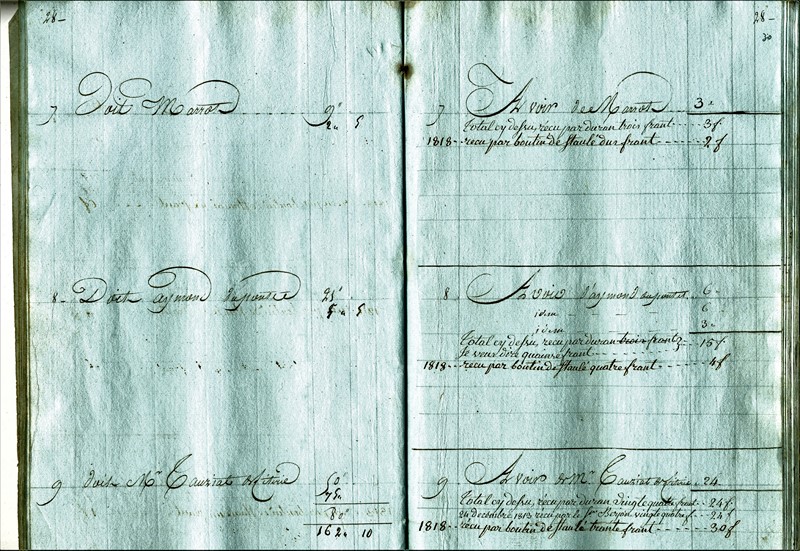 28-
7 Doit Marrot 9
2 5
8- Doit aymond dupontet 21
5 5
9 doit Mr Tauziat
162 10
28-
30
7 Avoir de Marrot 3
Total cy desu, recu par duran trois frant 3f
1818 recu par boutin de staulé dus frant 2f
8 Avoir d'aymond dupontet 6
idem 6
idem 3
Total cy desu, recu par duran trois frant 15f
Je veus dire quainse frant
1818 recu par boutin de staulé quatre frant 4f
9 Avoir de Mr Tauziat 24
Total cy desu, recu par duran vingte quatre frant 24f
24 decembre 1813 recu par le Sr vingte quatre f 24f
1818 recu par boutin de staulé trante frant 30f